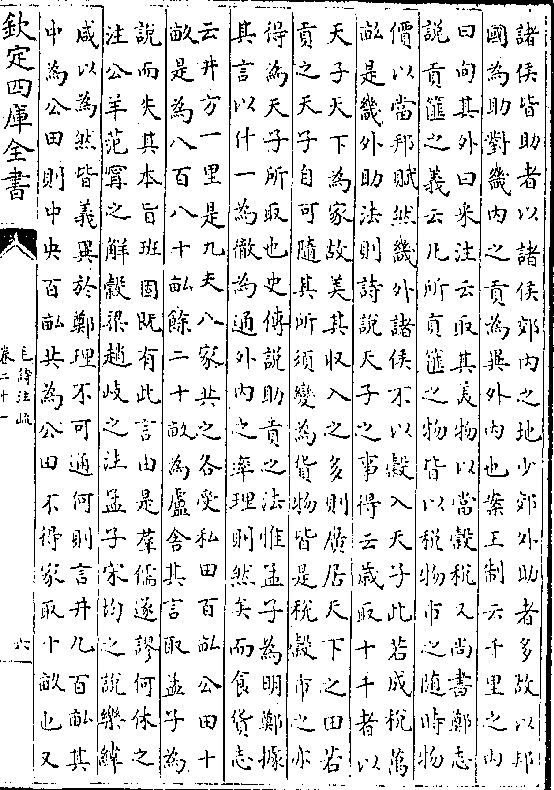 諸侯皆助者以諸侯郊内之地少郊外助者多故以邦
國為助對畿内之貢為異外内也案王制云千里之内
曰甸其外曰采注云取其美物以當穀稅又尚書鄭志
說貢篚之義云凡所貢篚之物皆以稅物市之随時物
價以當邦賦然畿外諸侯不以穀入天子此若成稅萬
畝是畿外助法則詩說天子之事得云歲取十千者以
天子天下為家故美其収入之多則廣居天下之田若
貢之天子自可隨其所須變為貨物皆是稅穀市之亦
得為天子所取也史傳說助貢之法惟孟子為明鄭據
其言以什一為徹為通外内之率理則然矣而食貨志
云井方一里是九夫八家共之各受私田百畝公田十
畝是為八百八十畝餘二十畝為廬舍其言取孟子為
說而失其本旨班固既有此言由是羣儒遂謬何休之
注公羊范甯之解穀梁趙岐之注孟子宋均之說樂緯
咸以為然皆義異於鄭理不可通何則言井九百畝其
中為公田則中央百畝共為公田不得家取十畝也又
欽定四庫全書
毛詩注疏
卷二十一
六